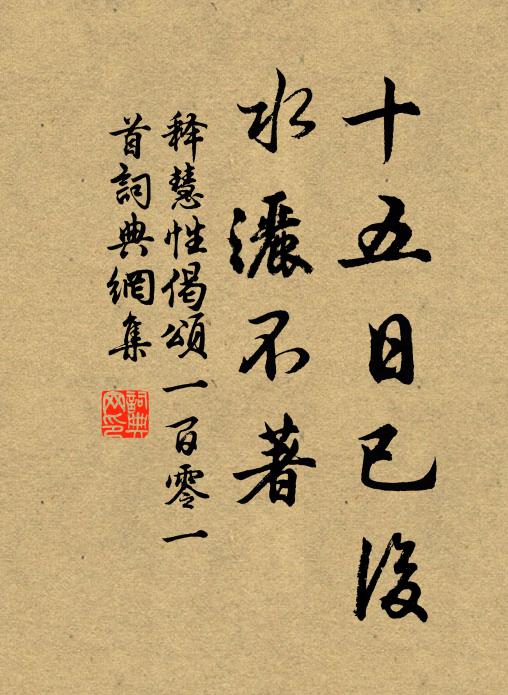 十五日已後
水灑不著
释慧性偈頌一百零一
首詞典網集
詞典
网印